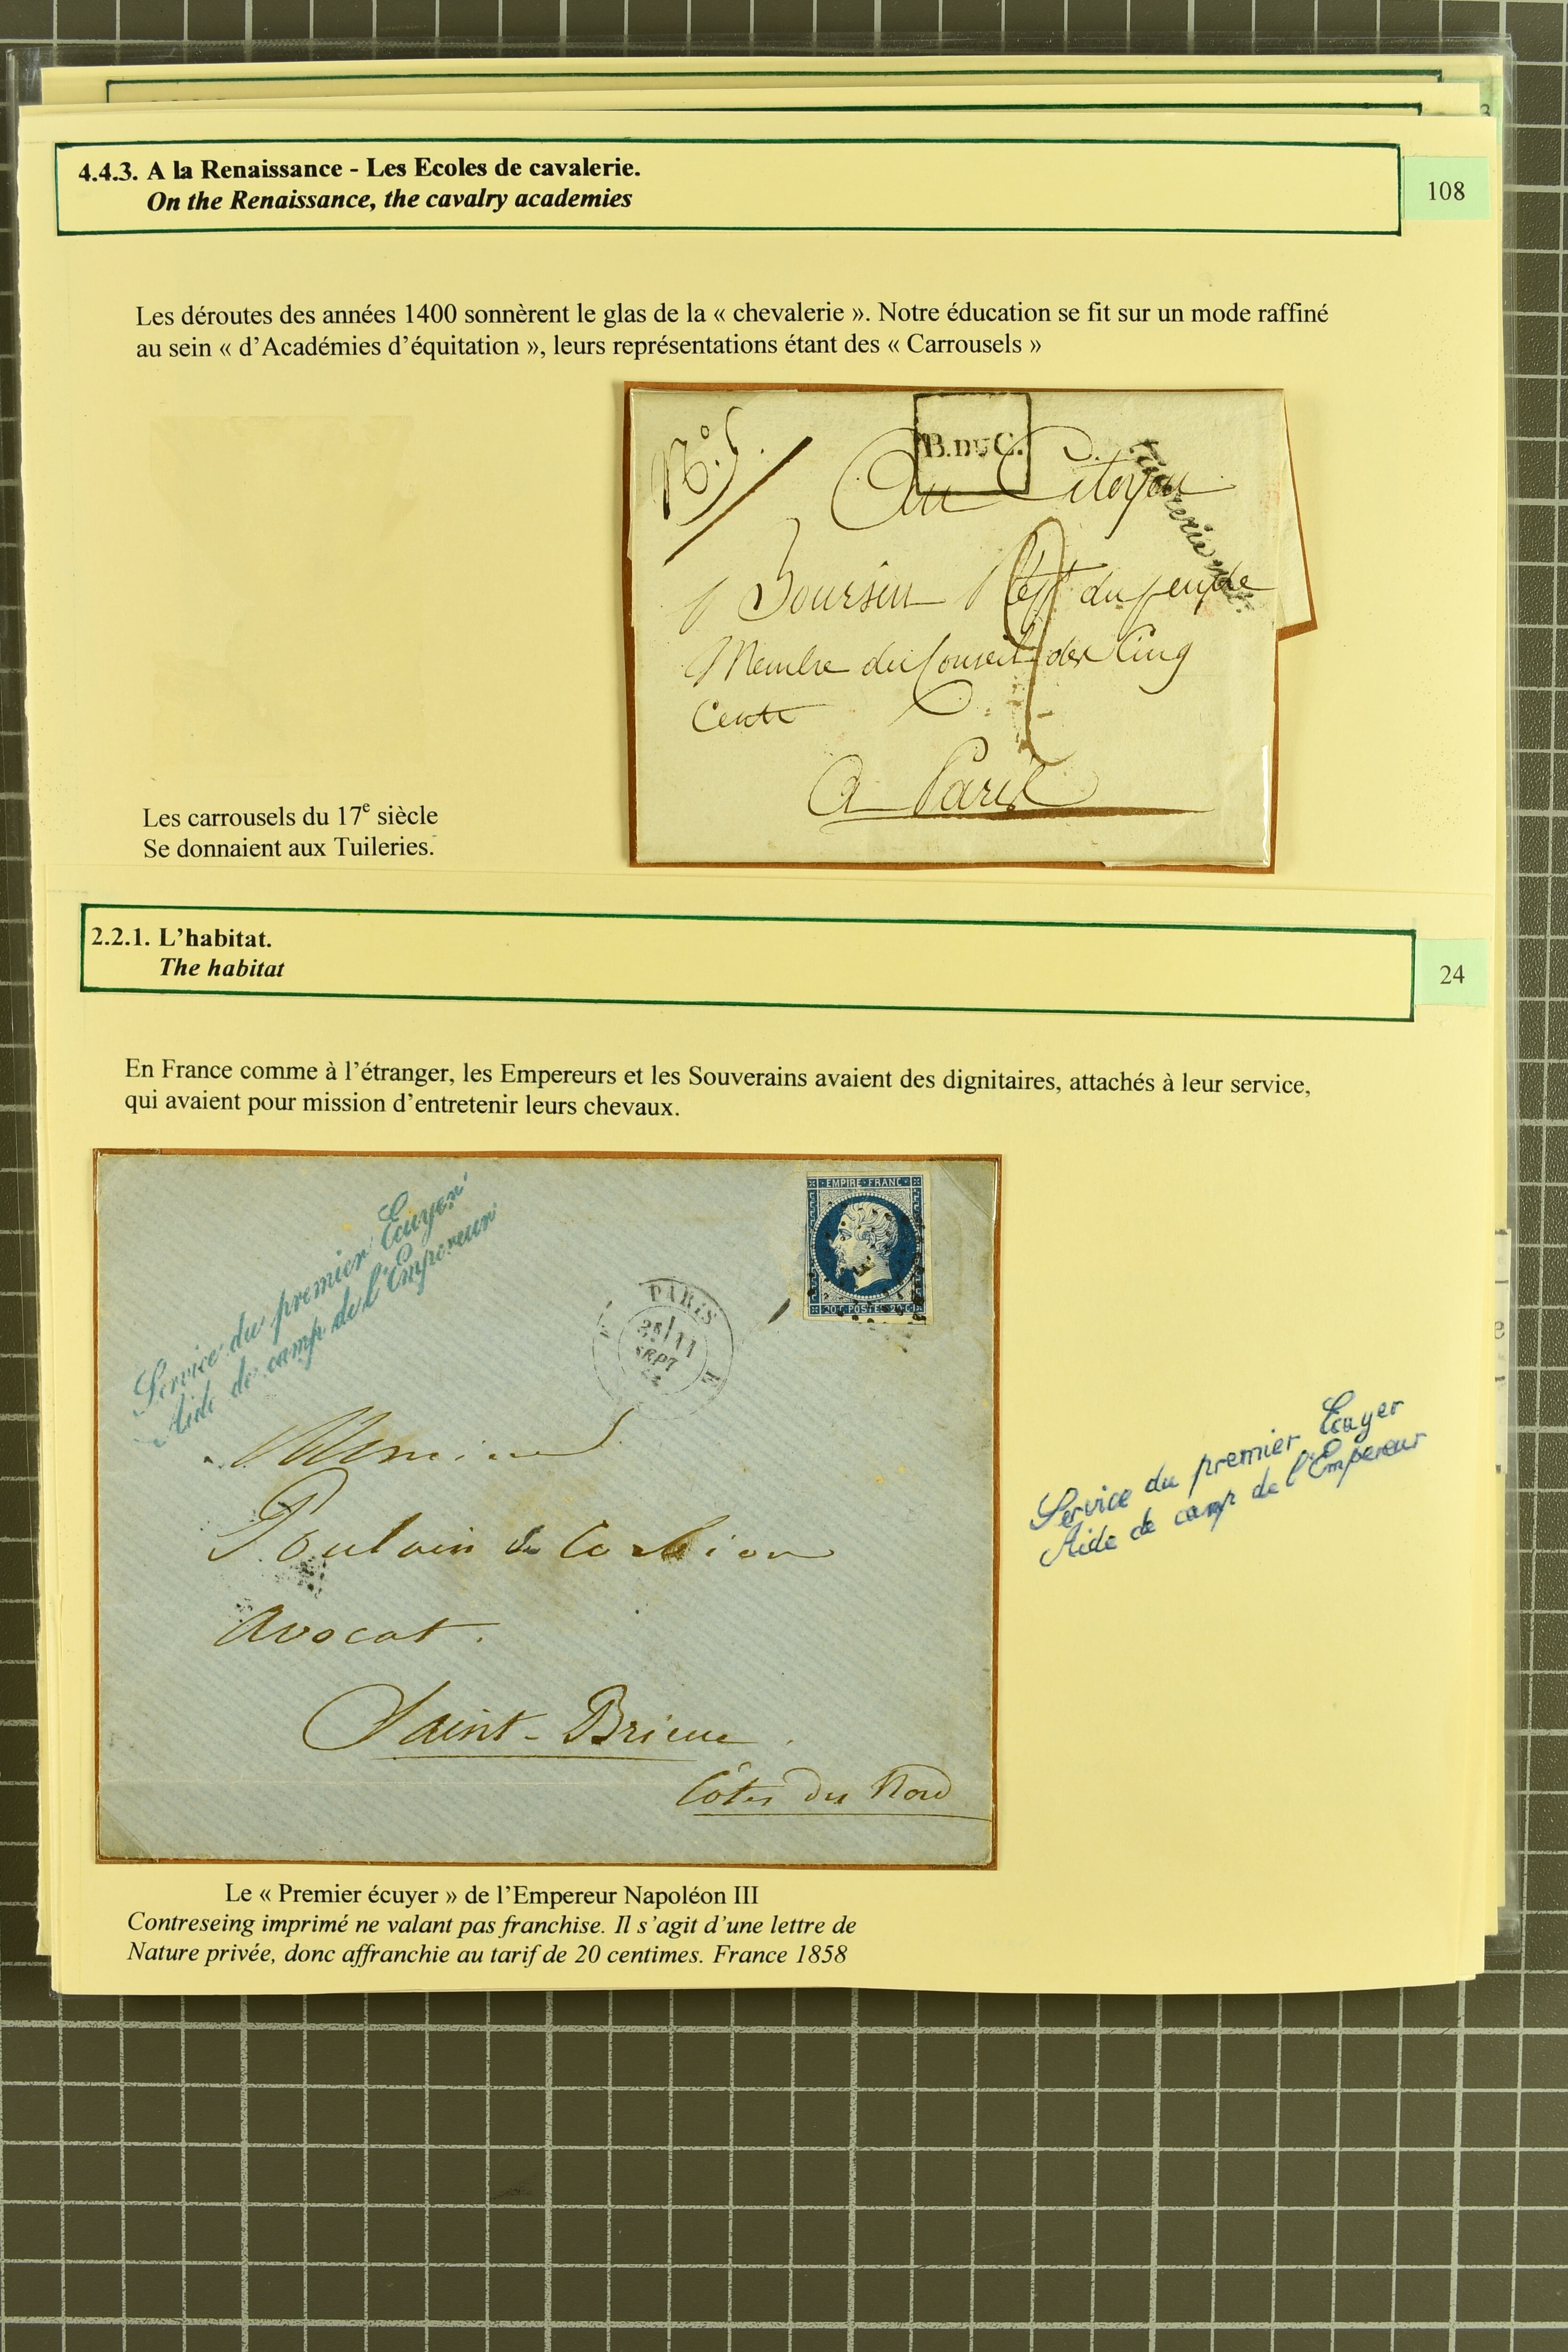 4.4.3. A la Renaissance - Les Ecoles de cavalerie.
On the Renaissance, the cavalry academies
108
Les déroutes des années 1400 sonnèrent le glas de la « chevalerie ». Notre éducation se fit sur un mode raffiné
au sein « d'Académies d'équitation », leurs représentations étant des « Carrousels »
B.DUC.
Au Citoyen
Boursin Rept du peuple
Membre du Conseil des Cinq
Cents
A Paris
Les carrousels du 17e siècle
Se donnaient aux Tuileries.
2.2.1. L'habitat.
The habitat
24
En France comme à l'étranger, les Empereurs et les Souverains avaient des dignitaires, attachés à leur service,
qui avaient pour mission d'entretenir leurs chevaux.
Service du premier Ecuyer
Aide de camp de l'Empereur
EMPIRE FRANC
20 C POSTES 20 C
PARIS
SEPT
Monsieur
Poulain de Corbion
Avocat.
Saint-Brieuc
Côtes du Nord
Service du premier Ecuyer
Aide de camp de l'Empereur
Le « Premier écuyer » de l'Empereur Napoléon III
Contreseing imprimé ne valant pas franchise. Il s'agit d'une lettre de
Nature privée, donc affranchie au tarif de 20 centimes. France 1858